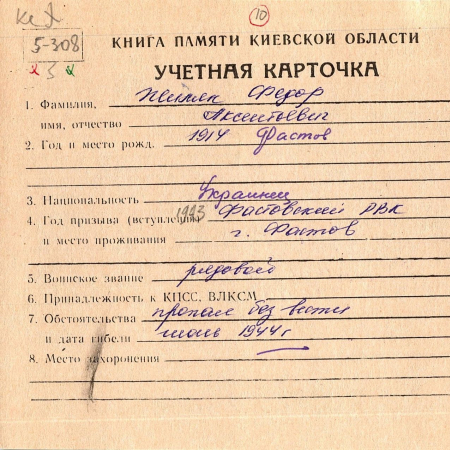 10
5-308
3
КНИГА ПАМЯТИ КИЕВСКОЙ ОБЛАСТИ
УЧЕТНАЯ КАРТОЧКА
1. Фамилия, Федор
имя, отчество Аксентоевич
2. Год и место рожд. 1914 Фастов
3. Национальность Украинец
4. Год призыва (вступления) 1943 Фастовский РВК
и место проживания г. Фастов
5. Воинское звание рядовой
6. Принадлежность к КПСС, ВЛКСМ
7. Обстоятельства пропал без вести
и дата гибели 1944 г
8. Место захоронения